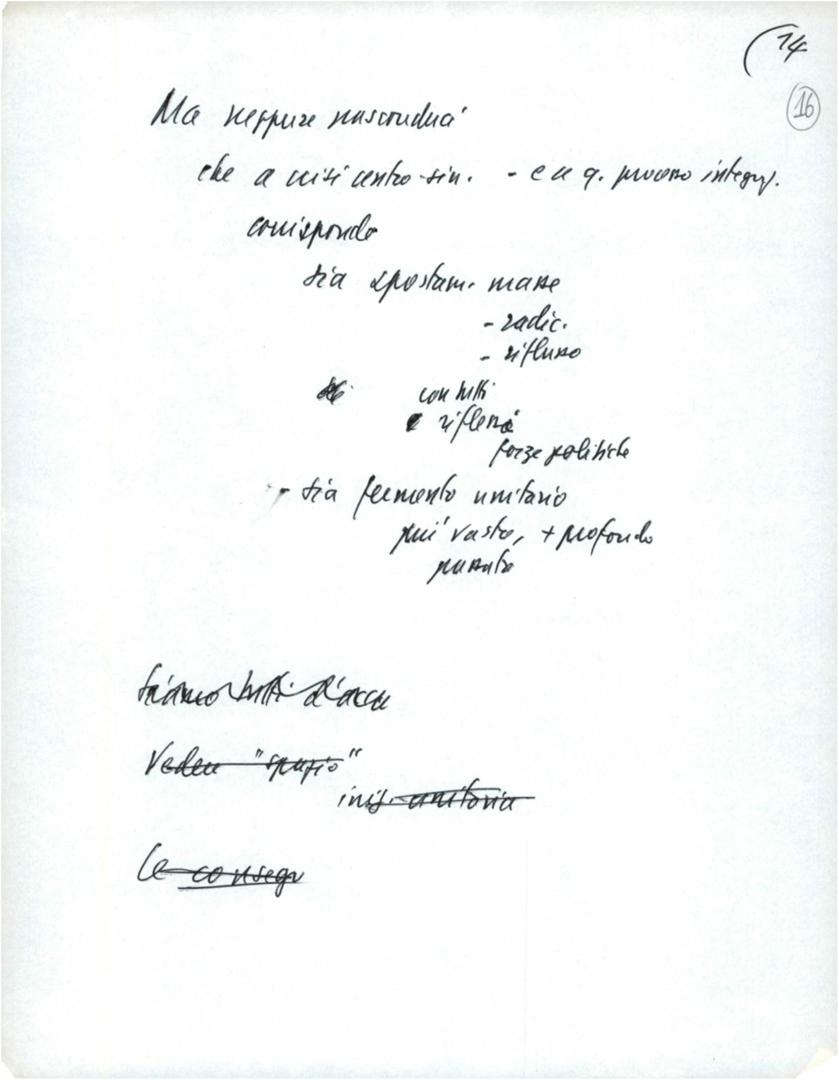 (14
16
Ma neppure nasconderci
che a crisi centro-sin. - e a q. processo integraz.
corrisponde
sia spostam. masse
- radic.
- riflusso
con tutti
e riflessi
forze politiche
- sia fermento unitario
più vasto, + profondo
passato
Siamo tutti d'accu
Veden "spazio"
iniz. unitaria
Le consegu